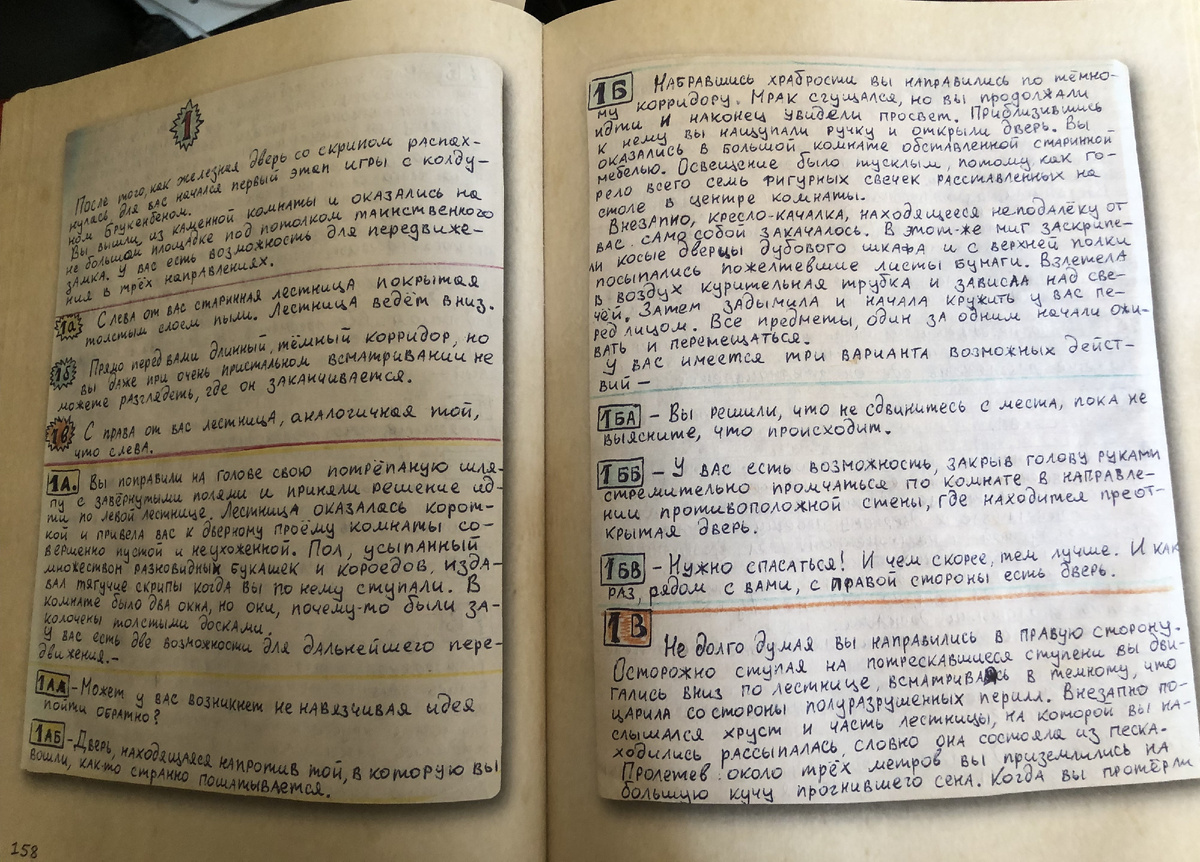 1
После того, как железная дверь со скрипом распах-
нулась, для вас начался первый этап игры с колду-
ном Брукенбеном.
Вы вышли из каменной комнаты и оказались на
не большой площадке под потолком таинственного
замка. У вас есть возможность для передвиже-
ния в трёх направлениях.
1а Слева от вас старинная лестница покрытая
толстым слоем пыли. Лестница ведёт вниз.
1б Прямо перед вами длинный, тёмный корридор, но
вы даже при очень пристальном всматривании не
можете разглядеть, где он заканчивается.
1в С права от вас лестница, аналогичная той,
что слева.
1А. Вы поправили на голове свою потрёпаную шля-
пу с завёрнутыми полями и приняли решение ид-
ти по левой лестнице. Лестница оказалась корот-
кой и привела вас к дверному проёму комнаты со-
вершенно пустой и неухоженной. Пол, усыпанный
множеством разновидных букашек и короедов, изда-
вал тягучие скрипы когда вы по нему ступали. В
комнате было два окна, но они, почему-то были за-
колочены толстыми досками.
У вас есть две возможности для дальнейшего пере-
движения.-
1АА - Может у вас возникнет не навязчивая идея
пойти обратно?
1АБ - Дверь, находящаяся напротив той, в которую вы
вошли, как-то странно пошатывается.
158
1Б Набравшись храбрости вы направились по тёмно-
му корридору. Мрак сгущался, но вы продолжали
идти и наконец увидели просвет. Приблизившись
к нему вы нащупали ручку и открыли дверь. Вы
оказались в большой комнате обставленной старинной
мебелью. Освещение было тусклым, потому как го-
рело всего семь фигурных свечек расставленных на
столе в центре комнаты.
Внезапно, кресло-качалка, находящееся неподалёку от
вас само собой закачалось. В этот-же миг заскрипе-
ли косые дверцы дубового шкафа и с верхней полки
посыпались пожелтевшие листы бумаги. Взлетела
в воздух курительная трубка и зависла над све-
чёй. Затем задымила и начала кружить у вас пе-
ред лицом. Все предметы, один за одним начали ожи-
вать и перемещаться.
У вас имеется три варианта возможных дейст-
вий -
1БА - Вы решили, что не сдвинитесь с места, пока не
выясните, что происходит.
1ББ - У вас есть возможность, закрыв голову руками
стремительно промчаться по комнате в направле-
нии противоположной стены, где находится преот-
крытая дверь.
1БВ - Нужно спасаться! И чем скорее, тем лучше. И как
раз, рядом с вами, с правой стороны есть дверь.
1В
Не долго думая вы направились в правую сторону.
Осторожно ступая на потрескавшиеся ступени вы дви-
гались вниз по лестнице, всматриваясь в темноту, что
царила со стороны полуразрушенных перилл. Внезапно по-
слышался хруст и часть лестницы, на которой вы на-
ходились рассыпалась, словно она состояла из песка.
Пролетев около трёх метров вы приземлились на
большую кучу прогнившего сена. Когда вы протёрли